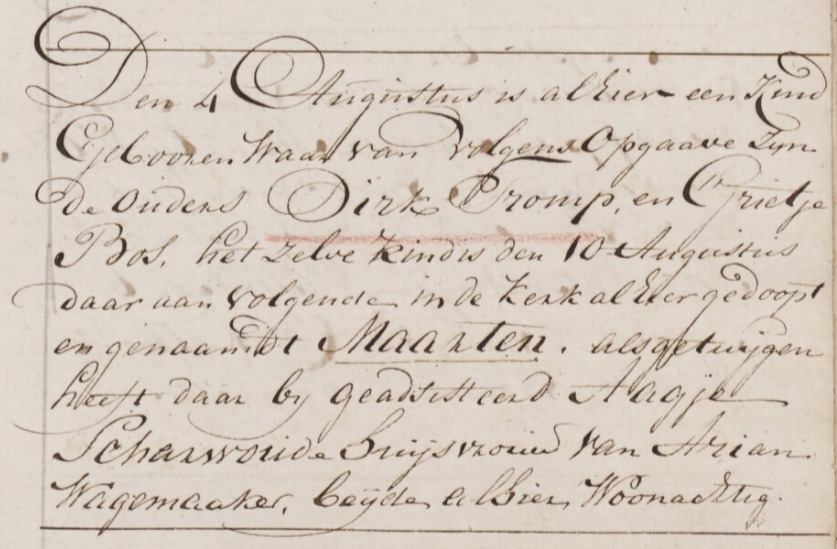 Den 4 Augustus is alhier een Kind
Gebooren Waar van volgens Opgaave Zyn
de Ouders Dirk Tromp, en Grietje
Bos, het zelve kindis den 10 Augustus
daar aan volgende in de Kerk alhier gedoopt
en genaamdt Maarten. als getuijgen
heeft daar by geadsisteerd Aagje
Scharwoude huijsvrouw van Arian
Wagemaaker, beijde alhier Woonachtig.